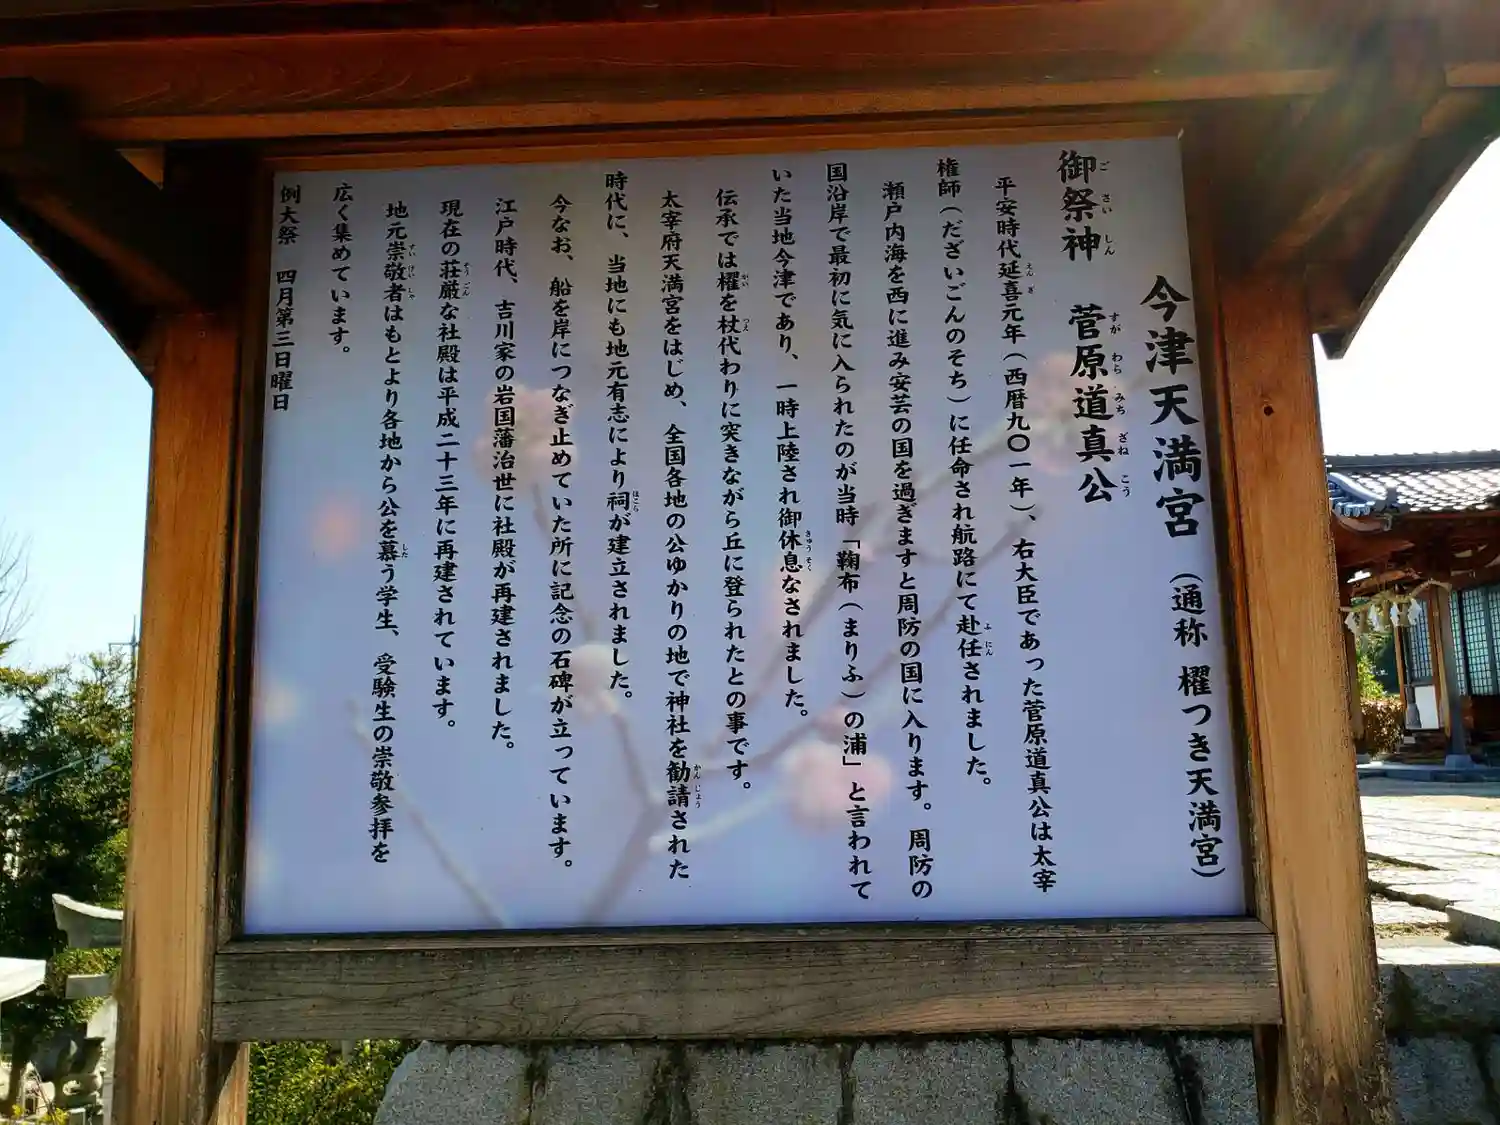 今津天満宮（通称 櫂つき天満宮）
御祭神 菅原道真公
ごさいしん すがわらみちざねこう
平安時代延喜元年（西暦九〇一年）、右大臣であった菅原道真公は太宰
えんぎ
権師（だざいごんのそち）に任命され航路にて赴任されました。
ふにん
瀬戸内海を西に進み安芸の国を過ぎますと周防の国に入ります。周防の
国沿岸で最初に気に入られたのが当時「鞠布（まりふ）の浦」と言われて
いた当地今津であり、一時上陸され御休息なされました。
きゅうそく
伝承では櫂を杖代わりに突きながら丘に登られたとの事です。
かい つえ
太宰府天満宮をはじめ、全国各地の公ゆかりの地で神社を勧請された
かんじょう
時代に、当地にも地元有志により祠が建立されました。
ほこら
今なお、船を岸につなぎ止めていた所に記念の石碑が立っています。
江戸時代、吉川家の岩国藩治世に社殿が再建されました。
現在の荘厳な社殿は平成二十三年に再建されています。
そうごん
地元崇敬者はもとより各地から公を慕う学生、受験生の崇敬参拝を
すいけいしゃ した
広く集めています。
例大祭 四月第三日曜日